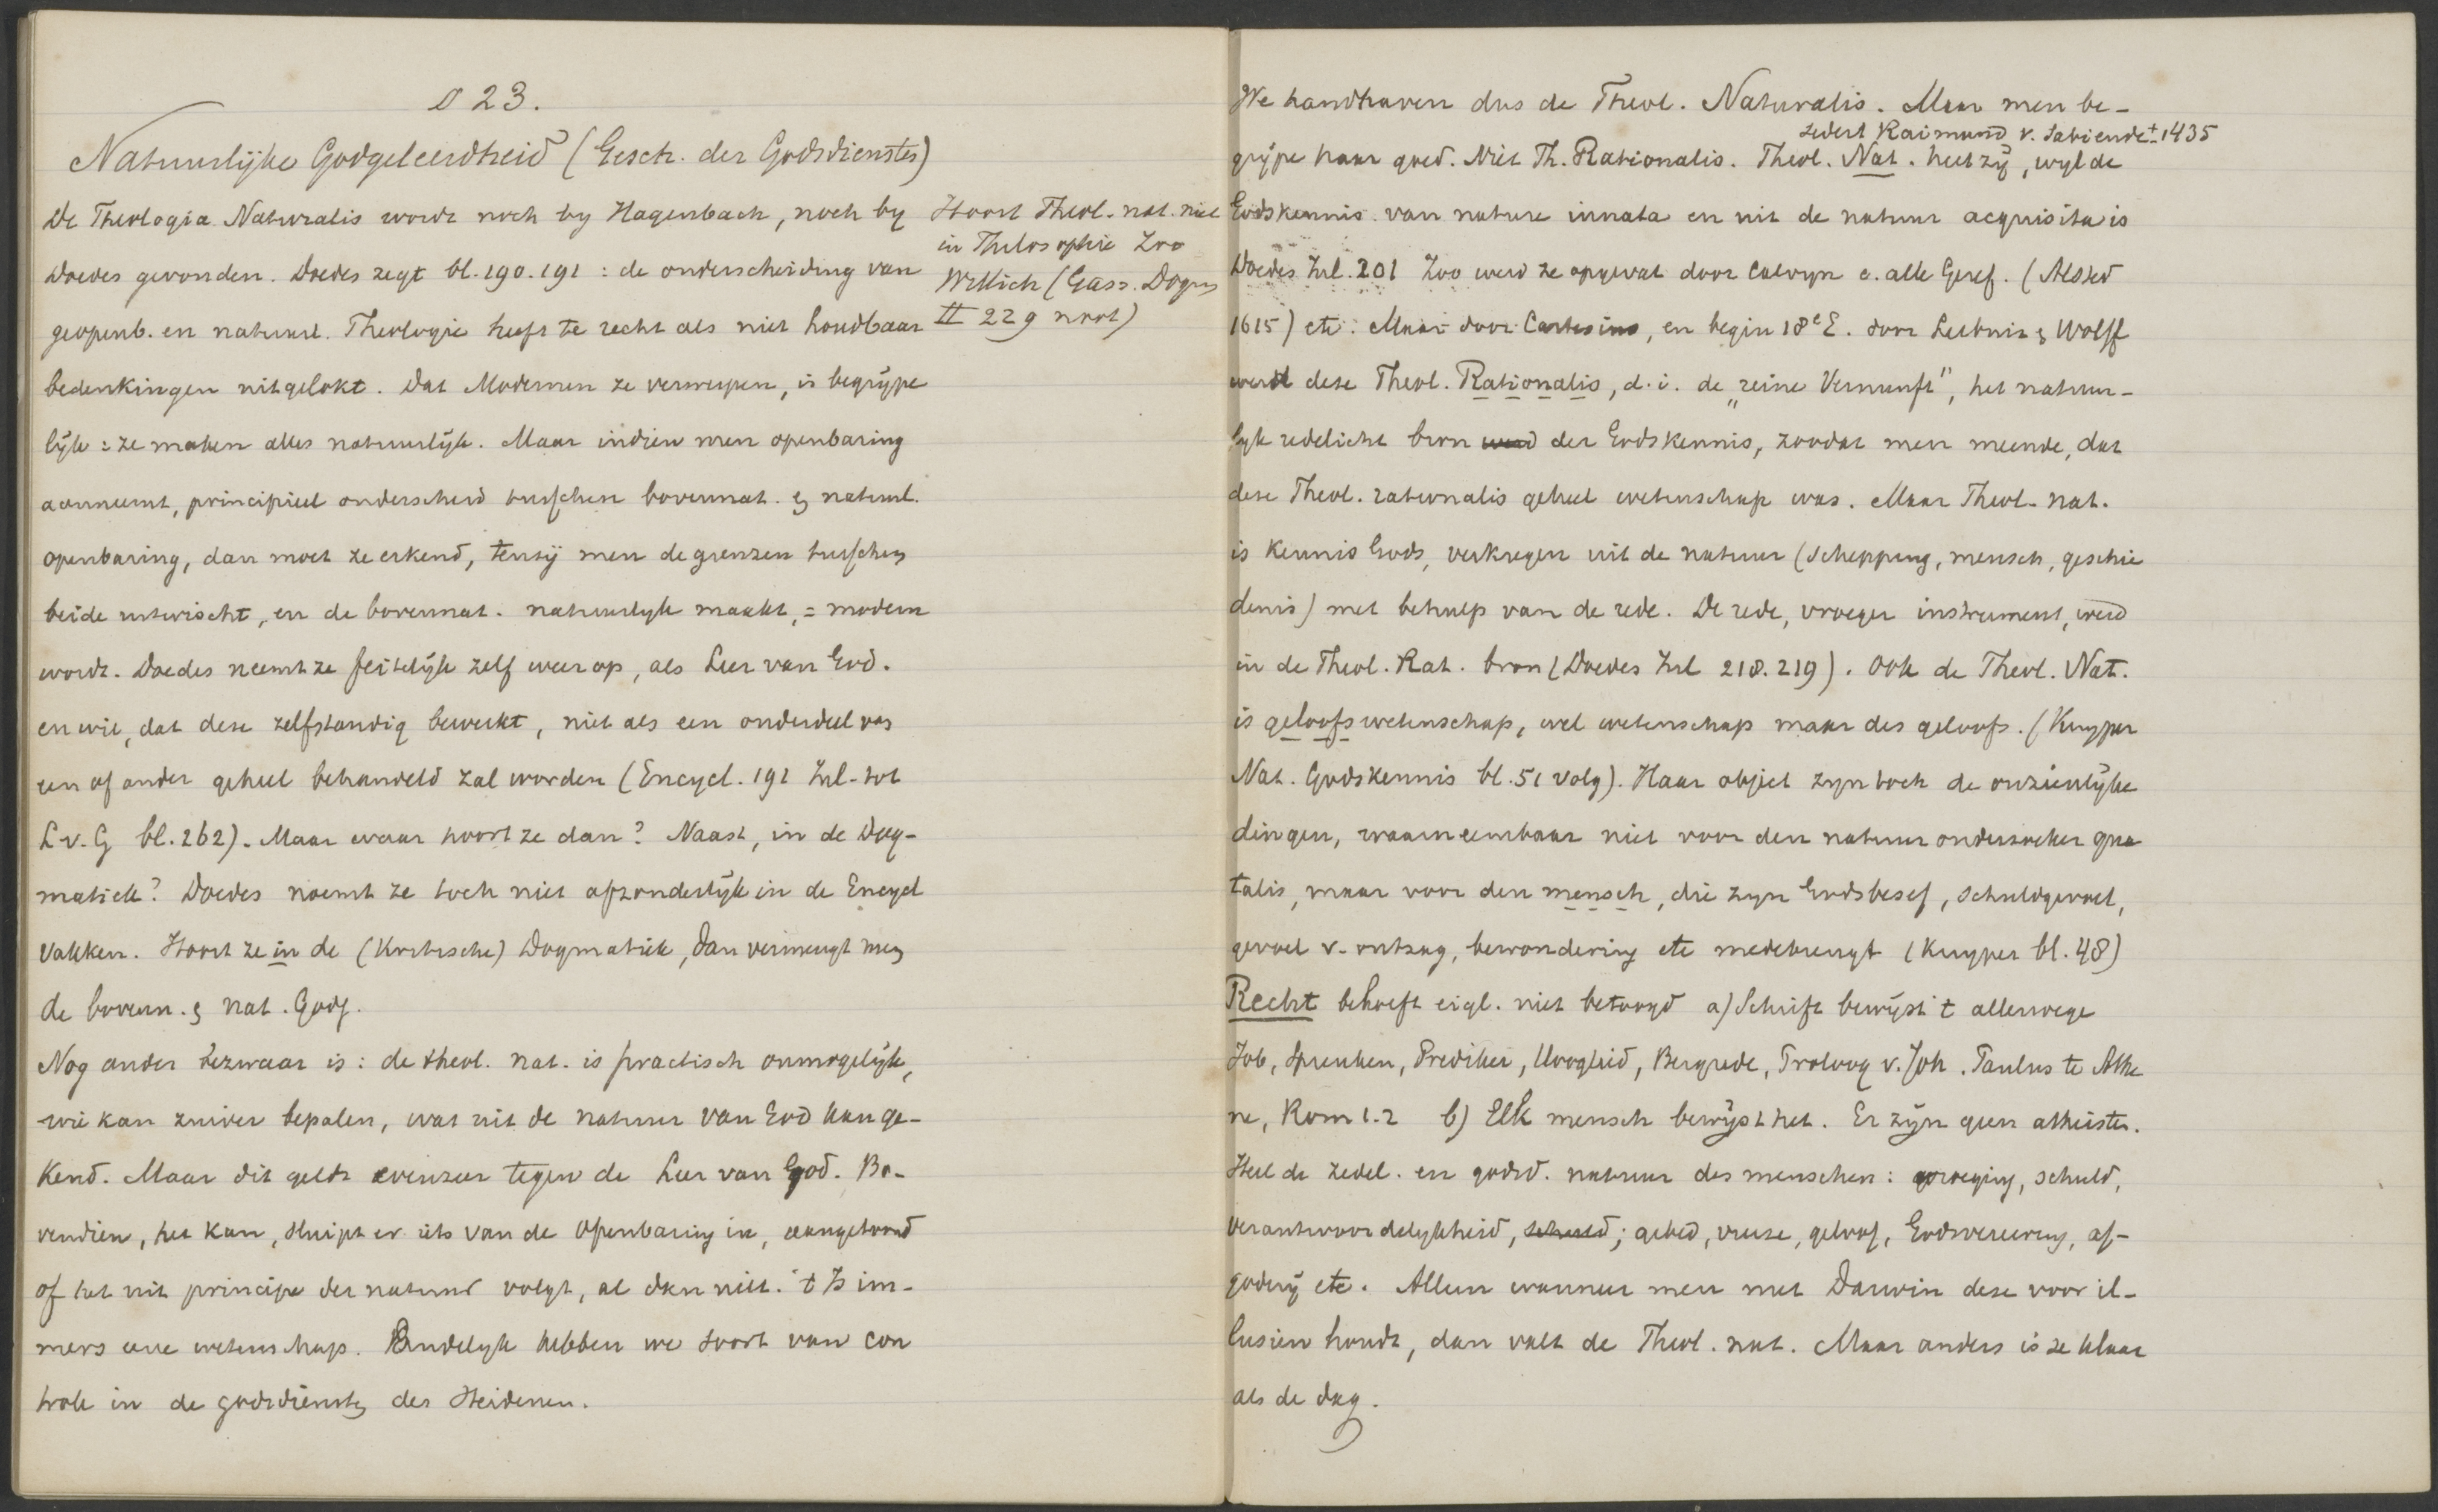 § 23.
Natuurlijke Godgeleerdheid (Gesch. der Godsdiensten)
De Theologia Naturalis wordt noch by Hagenbach, noch by
Doedes gevonden. Doedes zegt bl. 190. 191 : de onderscheiding van
geopenb. en natuurl. Theologie heeft te recht als niet houdbaar
bedenkingen uitgelokt. Dat Modernen ze verwerpen, is begrijpe
lijk : ze maken alles natuurlijk. Maar indien men openbaring
aanneemt, principieel onderscheid tusschen bovennat. & natuurl.
openbaring, dan moet ze erkend, tenzij men de grenzen tusschen
beide uitwischt, en de bovennat. natuurlyk maakt, = modern
wordt. Doedes neemt ze feitelijk zelf weer op, als Leer van God.
en wil, dat deze zelfstandig bewerkt, niet als een onderdeel van
een of ander geheel behandeld zal worden (Encycl. 191 Inl. tot
L v. G bl. 262). Maar waar hoort ze dan? Naast, in de Dog-
matiek? Doedes noemt ze toch niet afzonderlijk in de Encycl
vakken. Hoort ze in de (Kritische) Dogmatiek, dan vermengt men
de bovenn. & nat. Godg.
Nog ander bezwaar is : de theol. nat. is practisch onmogelijk,
wie kan zuiver bepalen, wat uit de natuur van God kan ge-
kend. Maar dit geldt evenzeer tegen de Leer van God. Bo-
vendien, het kan, sluipt er iets van de Openbaring in, aangetoond
of het uit principe der natuur volgt, al dan niet. 't Is im-
mers eene wetenschap. Eindelyk hebben we soort van con
trole in de godsdiensten der Heidenen.
Hoort Theol. nat. niet
in Philosophie Zoo
Wittich (Gass. Dogm
II 229 noot)
We handhaven dus de Theol. Naturalis. Maar men be-
sedert Raimund v. Sabiende ± 1435
grijpe haar goed. Niet Th. Rationalis. Theol. Nat. heet zij, wyl de
Godskennis van nature innata en uit de natuur acquisita is
Doedes Inl. 201 Zoo werd ze opgevat door Calvyn e. alle Geref. (Alsted
1615) etc. Maar door Cartesius, en begin 18e E. door Leibniz & Wolff
werd deze Theol. Rationalis, d. i. de „reine Vernunft", het natuur-
lyk redelicht bron werd der Godskennis, zoodat men meende, dat
deze Theol. rationalis geheel wetenschap was. Maar Theol. nat.
is kennis Gods, verkregen uit de natuur (schepping, mensch, geschie
denis) met behulp van de rede. De rede, vroeger instrument, werd
in de Theol. Rat. bron (Doedes Inl 218. 219). Ook de Theol. Nat.
is geloofswetenschap, wel wetenschap maar des geloofs. (Kuyper
Nat. Godskennis bl. 51 volg). Haar object zyn toch de onzienlijke
dingen, waarneembaar niet voor den natuuronderzoeker qua
talis, maar voor den mensch, die zyn Godsbesef, schuldgevoel,
gevoel v. ontzag, bewondering etc medebrengt (Kuyper bl. 48)
Recht behoeft eigl. niet betoogd a) Schrift bewijst 't allerwege
Job, Spreuken, Prediker, Hooglied, Bergrede, Proloog v. Joh. Paulus te Athe
ne, Rom 1.2 b) Elk mensch bewijst het. Er zijn geen atheisten.
Heel de zedel. en godsd. natuur des menschen : wroeging, schuld,
verantwoordelykheid, schuld; gebed, vreeze, geloof, Godsvereering, af-
godery etc. Alleen wanneer men met Darwin deze voor il-
lusien houdt, dan valt de Theol. nat. Maar anders is ze klaar
als de dag.